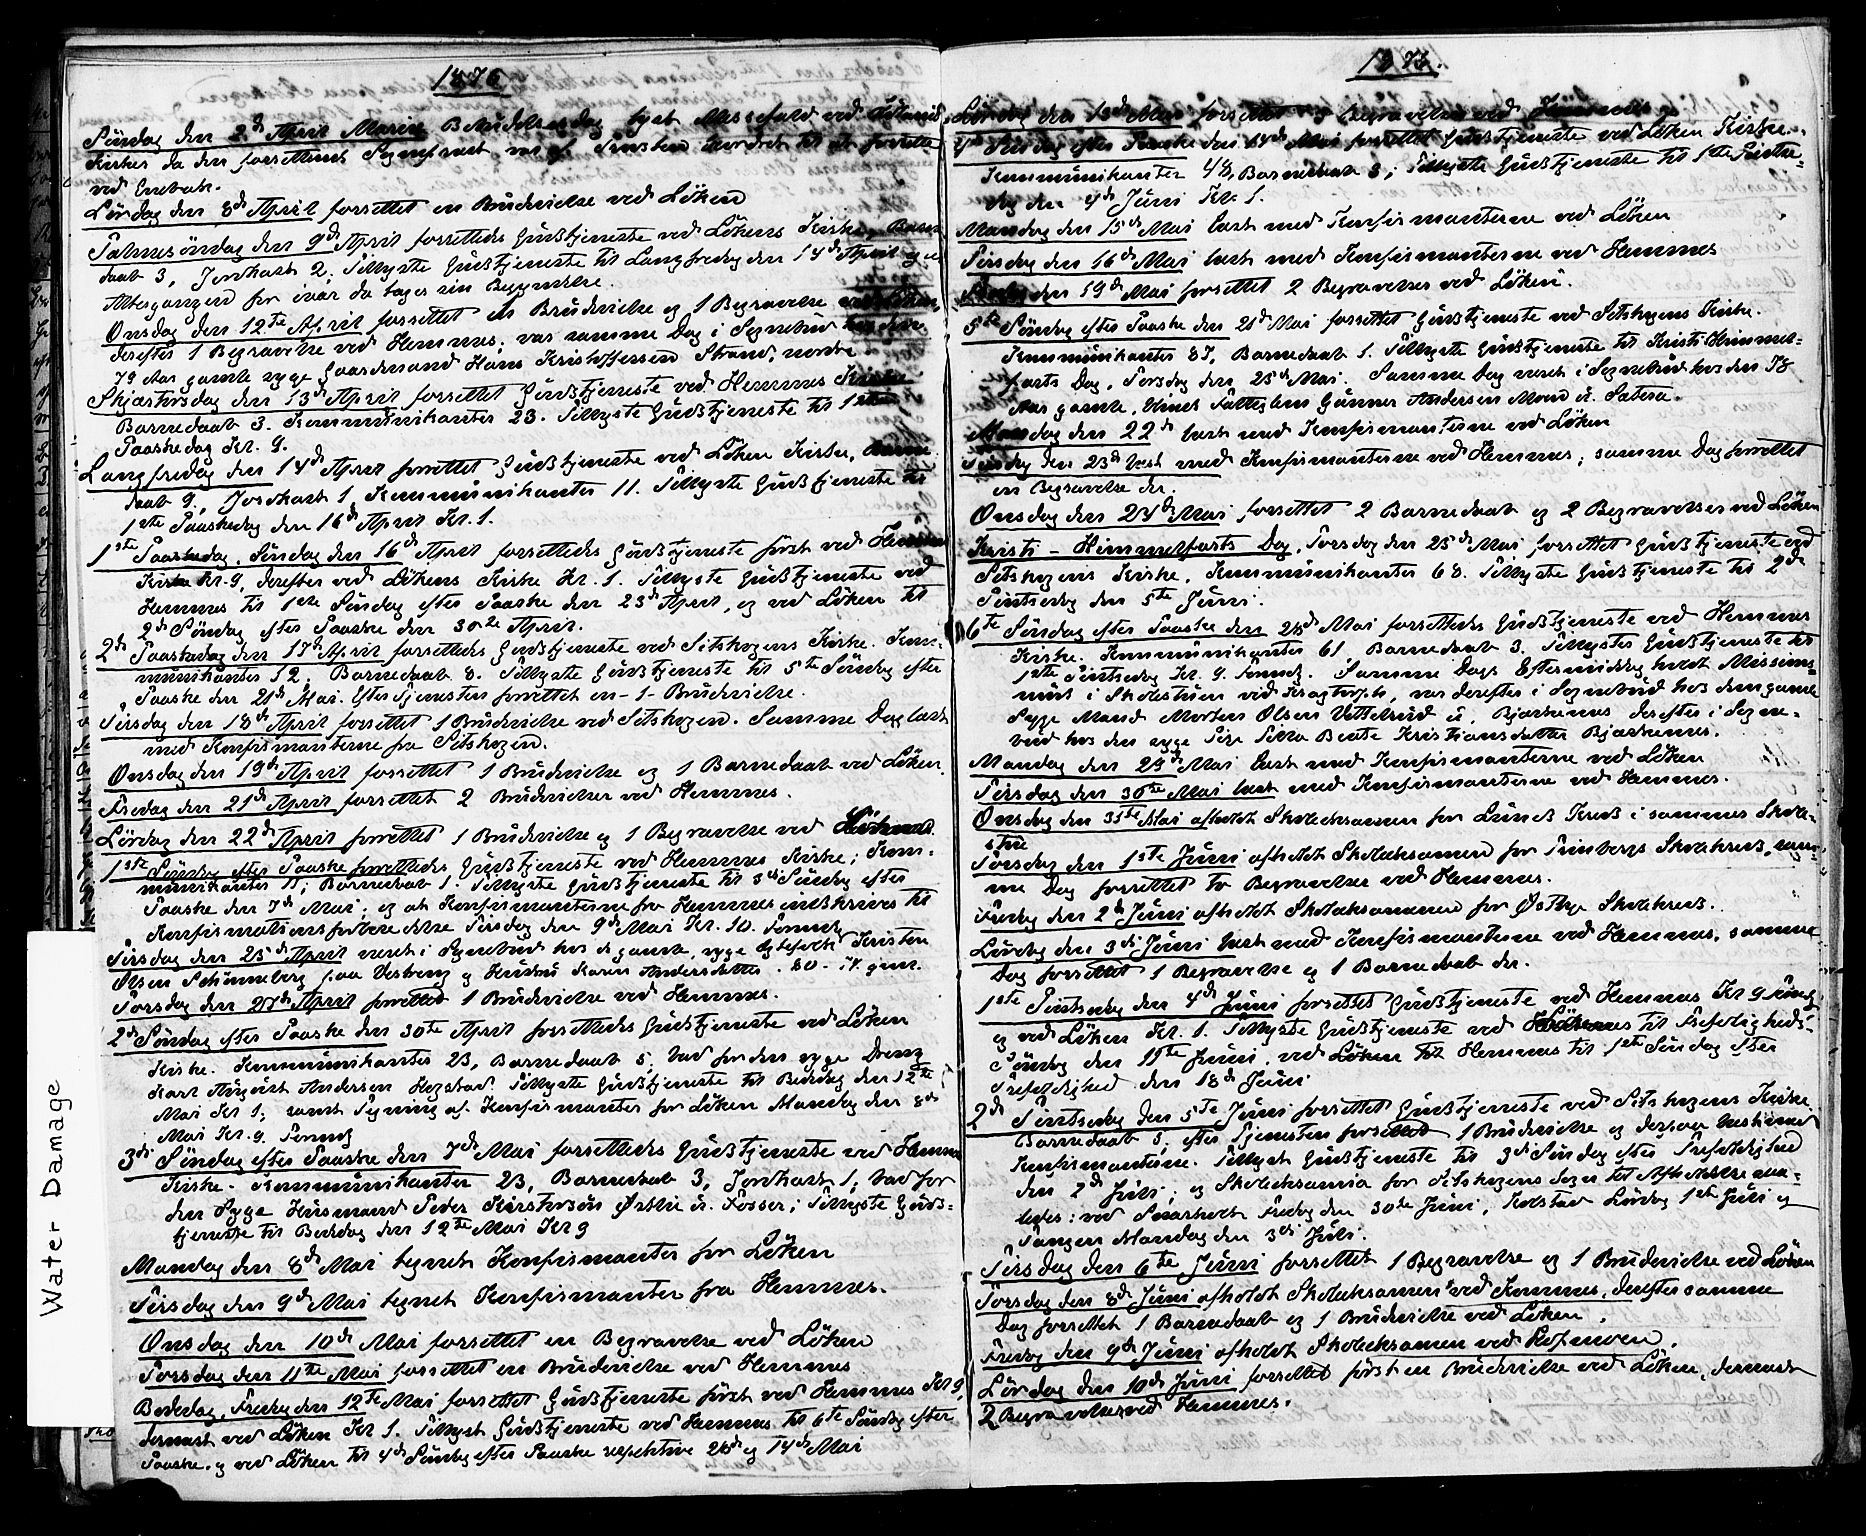 1876
Söndag den 2den April Mariæ Bebudelsesdag lyst Messefald ved
Kirke da den forrettende Sogneprest var af Provsten beordret til at forrette
ved Enebak.
Lördag den 8de April forrettet en Brudevielse ved Löken
Palmesöndag den 9de April forrettedes Gudstjeneste ved Lökens Kirke, Barne
daab 3, Jordkast 2. Tillyste Gudstjeneste til Langfredag den 14de April og at
Altergangen for iaar da tager sin Begyndelse.
Onsdag den 12te April forrettet en Brudevielse og 1 Begravelse ved Löken,
derefter 1 Begravelse ved Hemnes; var samme Dag i Sognebud hos den
79 Aar gamle syge Gaardmand Hans Kristoffersen Strand, nordre
Skjærtorsdag den 13de April forrettet Gudstjeneste ved Hemnes Kirke
Barnedaab 3. Kommunikanter 23. Tillyste Gudstjeneste til 1ste
Paaskedag Kl. 9.
Langfredag den 14de April forrettet Gudstjeneste ved Löken Kirke, Barne
daab 9, Jordkast 1, Kommunikanter 11. Tillyste Gudstjeneste til
1ste Paaskedag den 16de April Kl. 1.
1ste Paaskedag, Söndag den 16de April forrettedes Gudstjeneste först ved Hemnes
Kirke Kl. 9, derefter ved Lökens Kirke Kl. 1. Tillyste Gudstjeneste ved
Hemnes til 1ste Söndag efter Paaske den 23de April, og ved Löken til
2den Söndag efter Paaske den 30te April.
2den Paaskedag den 17de April forrettedes Gudstjeneste ved Setskogens Kirke. Kom-
munikanter 12, Barnedaab 8. Tillyste Gudstjeneste til 5te Söndag efter
Paaske den 21de Mai. Efter Tjenesten forrettet en - 1 - Brudevielse.
Tirsdag den 18de April forrettet 1 Brudevielse ved Setskogen. Samme Dag læst
med Konfirmanterne fra Setskogen.
Onsdag den 19de April forrettet 1 Brudevielse og 1 Barnedaab ved Löken.
Fredag den 21de April forrettet 2 Brudevielser ved Hemnes.
Lördag den 22de April forrettet 1 Brudevielse og 1 Begravelse ved
1ste Söndag efter Paaske forrettedes Gudstjeneste ved Hemnes Kirke; Kom-
munikanter 11; Barnedaab 1. Tillyste Gudstjeneste til 3die Söndag efter
Paaske den 7de Mai; og at Konfirmanterne fra Hemnes indskrives til
Konfirmationsforberedelse Tirsdag den 9de Mai Kl. 10. Formdg
Tirsdag den 25de April været i Sognebud hos de gamle, syge Ægtefolk Kristen
Olsen Schönneberg paa Vestreng og Hustru Karen Andersdatter. 80 - 74 gml.
Torsdag den 27de April forrettet 1 Brudevielse ved Hemnes.
2den Söndag efter Paaske den 30te April forrettedes Gudstjeneste ved Löken
Kirke. Kommunikanter 23, Barnedaab 5, bad for den syge Dreng
Karl August Andersen Hogstad. Tillyste Gudstjeneste til Bededag den 12te
Mai Kl 1; samt Tegning af Konfirmanter for Löken Mandag den 8de
Mai Kl. 9 Formdg
3die Söndag efter Paaske den 7de Mai forrettedes Gudstjeneste ved Hemnes
Kirke. Kommunikanter 23, Barnedaab 3, Jordkast 1, bad for
den Syge Husmand Peder Kristensön Østlie u. Fosser; Tillyste Guds-
tjeneste til Bededag den 12te Mai Kl 9
Mandag den 8de Mai tegnet Konfirmanter for Löken
Tirsdag den 9de Mai tegnet Konfirmanter fra Hemnes.
Onsdag den 10de Mai forrettet en Begravelse ved Löken
Torsdag den 11te Mai forrettet en Brudevielse ved Hemnes
Bededag, Fredag den 12te Mai forrettet Gudstjeneste först ved Hemnes Kl 9,
dernæst ved Löken Kl 1. Tillyst Gudstjeneste ved Hemnes til 6te Söndag efter
Paaske, og ved Löken til 4de Söndag efter Paaske respektive 28de og 14de Mai
1876.
Lördag den 13de Mai forrettet Begravelse ved
4de Söndag efter Paaske den 14de Mai forrettet Gudstjeneste ved Löken Kirke.
Kommunikanter 48, Barnedaab 3; Tillyste Gudstjeneste til 1ste Pintse-
dag den 4de Juni Kl. 1.
Mandag den 15de Mai læst med Konfirmanterne ved Löken
Tirsdag den 16de Mai læst med Konfirmanterne ved Hemnes
Fredag den 19de Mai forrettet 2 Begravelser ved Löken.
5te Söndag efter Paaske den 21de Mai forrettet Gudstjeneste ved Setskogens Kirke.
Kommunikanter 87, Barnedaab 1. Tillyste Gudstjeneste til Kristi Himmel-
farts Dag, Torsdag den 25de Mai. Samme Dag været i Sognebud hos den 78
Aar gamle, blinde Fattiglem Gunner Andersen Moen u. Sætera.
Mandag den 22de læst med Konfirmanterne ved Löken
Tirsdag den 23de læst med Konfirmanterne ved Hemnes; samme Dag forrettet
en Begravelse der.
Onsdag den 24de Mai forrettet 2 Barnedaab og 2 Begravelser ved Löken
Kristi - Himmelfarts Dag, Torsdag den 25de Mai forrettet Gudstjeneste ved
Setskogens Kirke. Kommunikanter 68. Tillyste Gudstjeneste til 2den
Pintsedag den 5te Juni.
6te Söndag efter Paaske den 28de Mai forrettedes Gudstjeneste ved Hemnes
Kirke. Kommunikanter 61, Barnedaab 3. Tillyste Gudstjeneste til
1ste Pintsedag Kl. 9 Formdg. Samme Dags Eftermiddag holdt Missions
möde i Skolestuen ved Kragtorp, var derefter i Sognebud hos den gamle
Syge Mand Morten Olsen Vittelsrud u. Bjærkenes derefter i Sogne-
bud hos den syge Pige Petra Beate Kristiansdatter Bjærkenes.
Mandag den 29de Mai læst med Konfirmanterne ved Löken
Tirsdag den 30te Mai læst med Konfirmanterne ved Hemnes.
Onsdag den 31te Mai afholdt Skoleeksamen for Lunds Kreds i sammes Skole-
stue
Torsdag den 1ste Juni afholdt Skoleeksamen for Skolekreds, sam-
me Dag forrettet to Begravelser ved Hemnes.
Fredag den 2den Juni afholdt Skoleeksamen for Østbye Skolekreds.
Lördag den 3die Juni læst med Konfirmanterne ved Hemnes, samme
Dag forrettet 1 Begravelse og 1 Barnedaab der.
1ste Pintsedag den 4de Juni forrettet Gudstjeneste ved Hemnes Kl 9 Formdg
og ved Löken Kl. 1. Tillyste Gudstjeneste ved til Trefoligheds-
Söndag den 11te Juni, ved Hemnes til 1ste Söndag efter
Trefoldighed den 18de Juni
2den Pintsedag den 5te Juni forrettet Gudstjeneste ved Setskogens Kirke.
Barnedaab 5; efter Tjenesten forrettet 1 Brudevielse og dessuden
Konfirmanterne. Tillyst Gudstjeneste til 3die Söndag efter Trefoldighed
den 2den Juli; og Skoleeksamen for Setskogens Sogn til Afholdelse saa-
ledes: ved Fredag den 30te Juni, Kolstad Lördag 1ste Juli og
Tangen Mandag den 3die Juli.
Tirsdag den 6te Juni forrettet 1 Begravelse og 1 Brudevielse ved Löken
Torsdag den 8de Juni afholdt Skoleeksamen ved Kommes, derefter samme
Dag forrettet 1 Barnedaab og 1 Brudevielse ved Löken.
Fredag den 9de Juni afholdt Skoleeksamen ved Hofmoen.
Lördag den 10de Juni forrettet först en Brudevielse ved Löken, dernæst
2 Begravelser ved Hemnes.
Water Damage